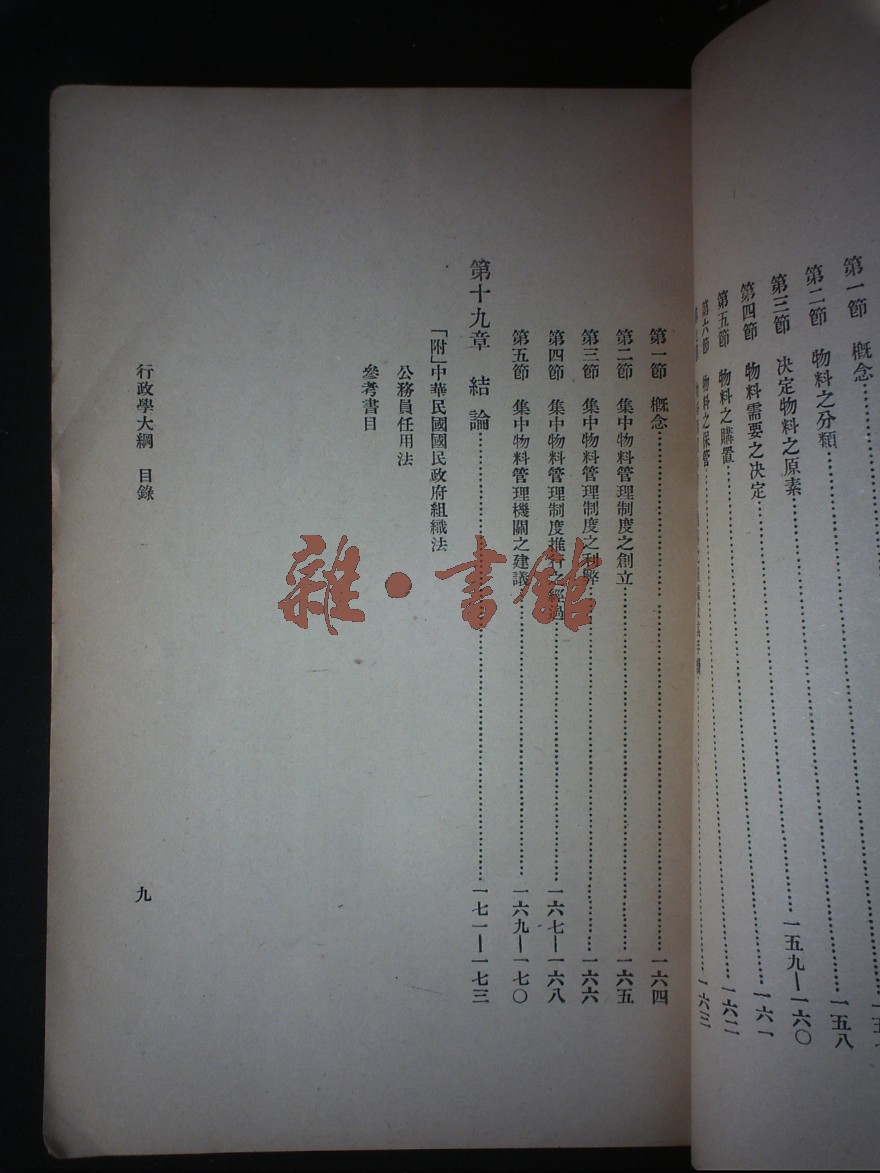 第一節　概念
第二節　物料之分類……一五八
第三節　決定物料之原素……一五九—一六〇
第四節　物料需要之決定……一六一
第五節　物料之購置……一六二
第六節　物料之保管……一六三
第一節　概念……一六四
第二節　集中物料管理制度之創立……一六五
第三節　集中物料管理制度之利弊……一六六
第四節　集中物料管理制度推行之經過……一六七—一六八
第五節　集中物料管理機關之建議……一六九—一七〇
第十九章　結論……一七一—一七三
「附」中華民國國民政府組織法
公務員任用法
參考書目
行政學大綱　目錄
九
雜·書館